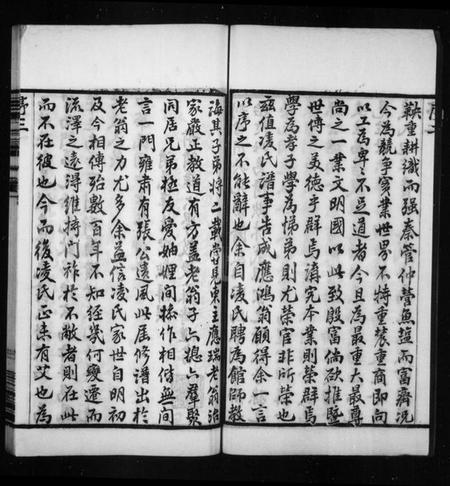 鞅重耕織而强秦管仲營魚鹽而富齊況
今為競爭實業世界不特重農重商即向
以工為卑卑不足道者今且為最重大最尊
尚之一業文明國以此致殷富倘欲推暨
世傳之美德乎群焉講究本業則榮群焉
學為孝子學為悌弟則尤榮官非所榮也
茲值凌氏譜事告成應鴻翁顧得余一言
以序之不能辭也余自凌氏聘為館師教
海其子弟將二載常見東主應瑞老翁治
家嚴正教道有方蓋老翁子六孫六群聚
同居兄弟極友愛妯娌間操作相偕無間
言一門雍肅有張公遺風此屆修譜出於
老翁之力尤多余益信凌氏家世自明初
及今相傳殆數百年不知經幾何變遷而
流澤之遠得維持門祚於不敝者則在此
而不在彼也今而後凌氏正未有艾也為
序三